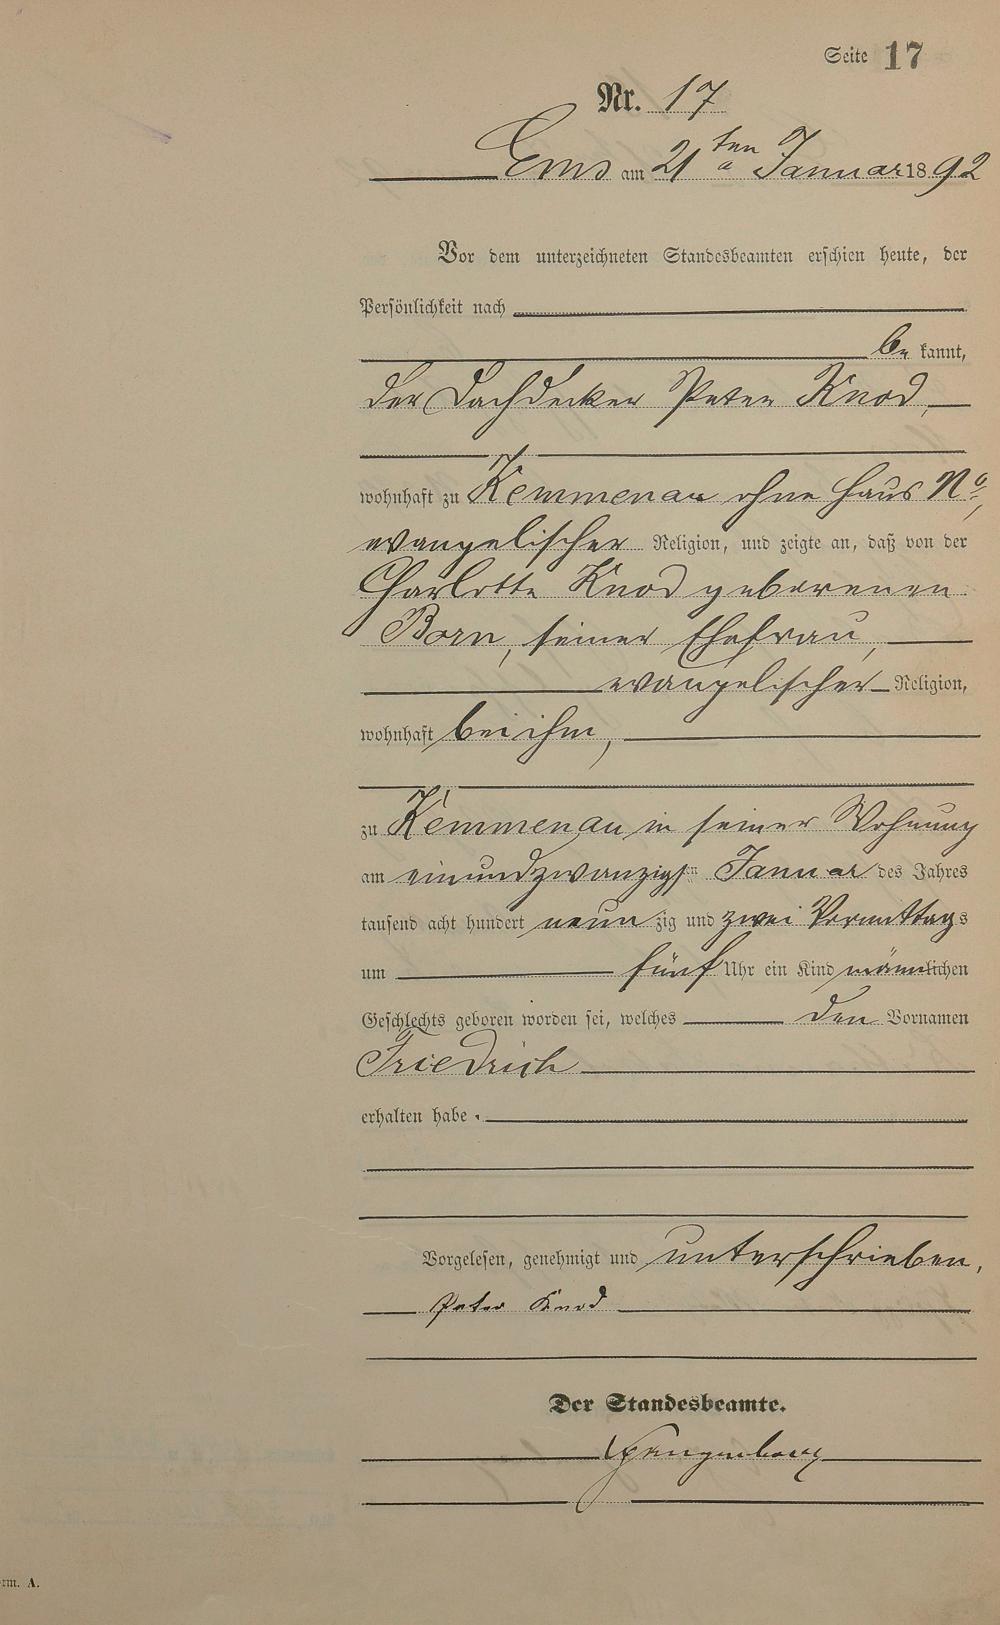 Seite 17
Nr. 17
Ems am 21ten Januar 1892
Vor dem unterzeichneten Standesbeamten erschien heute, der
Persönlichkeit nach
bekannt,
der Dachdecker Peter Knod,
wohnhaft zu Kemmenau ohne Haus No,
evangelischer Religion, und zeigte an, daß von der
Charlotte Knod geborenen
Born, seiner Ehefrau,
evangelischer Religion,
wohnhaft bei ihm,
zu Kemmenau in seiner Wohnung
am einundzwanzigsten Januar des Jahres
tausend acht hundert neunzig und zwei Vormittags
um fünf Uhr ein Kind männlichen
Geschlechts geboren worden sei, welches den Vornamen
Friedrich
erhalten habe.
Vorgelesen, genehmigt und unterschrieben,
Peter Knod
Der Standesbeamte.
rm. A.